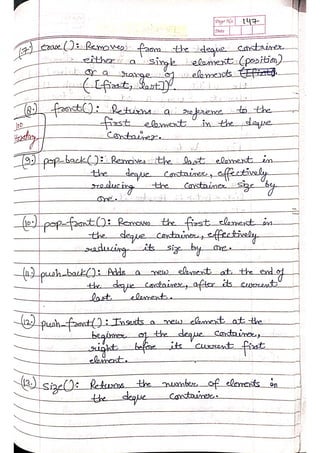 Page No. 147
Date
(7.) erase(): Removes from the deque container
either a single element (position)
or a range of elements
([first, last]).
(8.) front(): Returns a reference to the
first element in the deque
container.
(9.) pop-back(): Removes the last element in
the deque container, effectively
reducing the container size by
one.
(10.) pop-front(): Removes the first element in
the deque container, effectively
reducing its size by one.
(11.) push-back(): Adds a new element at the end of
the deque container, after its current
last element.
(12.) push-front(): Inserts a new element at the
beginning of the deque container,
right before its current first
element.
(13.) size(): Returns the number of elements in
the deque container.